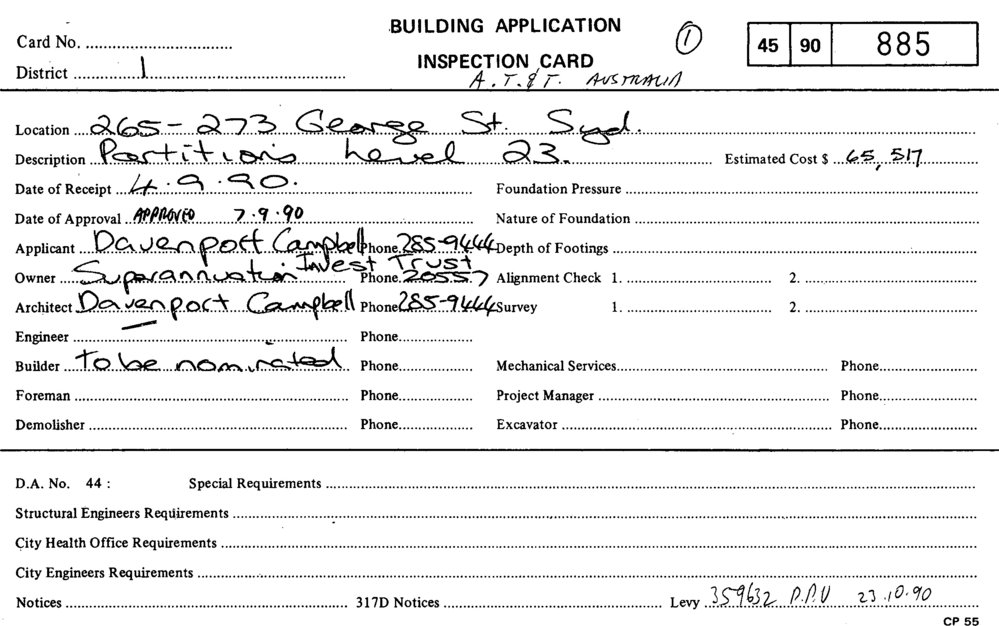 BUILDING APPLICATION
Card No. 1 45 90 885
INSPECTION CARD
District 1
A.T.&T. AUSTRALIA
Location 265-273 George St. Syd.
Description Partitions Level 23. Estimated Cost $ 65,517
Date of Receipt 4.9.90. Foundation Pressure
Date of Approval APPROVED 7.9.90 Nature of Foundation
Applicant Davenport Campbell Phone 285-9444 Depth of Footings
Owner Superannuation Invest Trust Phone 20557 Alignment Check 1. 2.
Architect Davenport Campbell Phone 285-9444 Survey 1. 2.
Engineer Phone
Builder To be nominated Phone Mechanical Services Phone
Foreman Phone Project Manager Phone
Demolisher Phone Excavator Phone
D.A. No. 44 : Special Requirements
Structural Engineers Requirements
City Health Office Requirements
City Engineers Requirements
Notices 317D Notices Levy 359632 P.P.U 23.10.90
CP 55